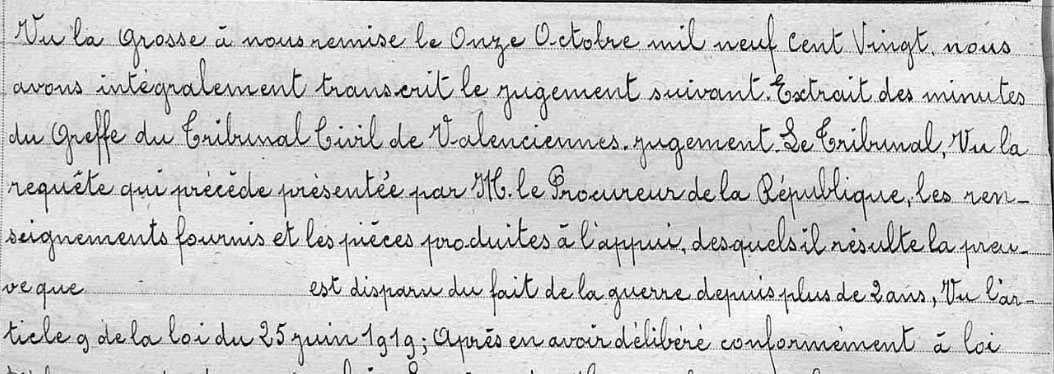 Vu la Grosse à nous remise le Onze Octobre mil neuf Cent Vingt, nous
avons intégralement transcrit le jugement suivant. Extrait des minutes
du Greffe du Tribunal Civil de Valenciennes. jugement. Le Tribunal, Vu la
requête qui précède présentée par M. le Procureur de la République, les ren-
seignements fournis et les pièces produites à l'appui, desquels il résulte la preu-
ve que est disparu du fait de la guerre depuis plus de 2 ans, Vu l'ar-
ticle 9 de la loi du 25 juin 1919; Après en avoir délibéré conformément à loi